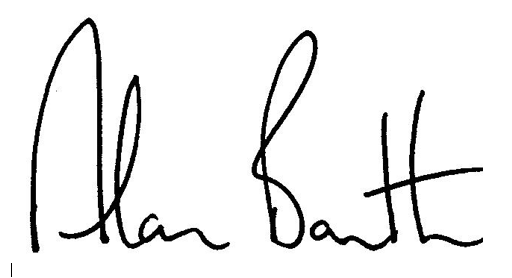 Alan Barth